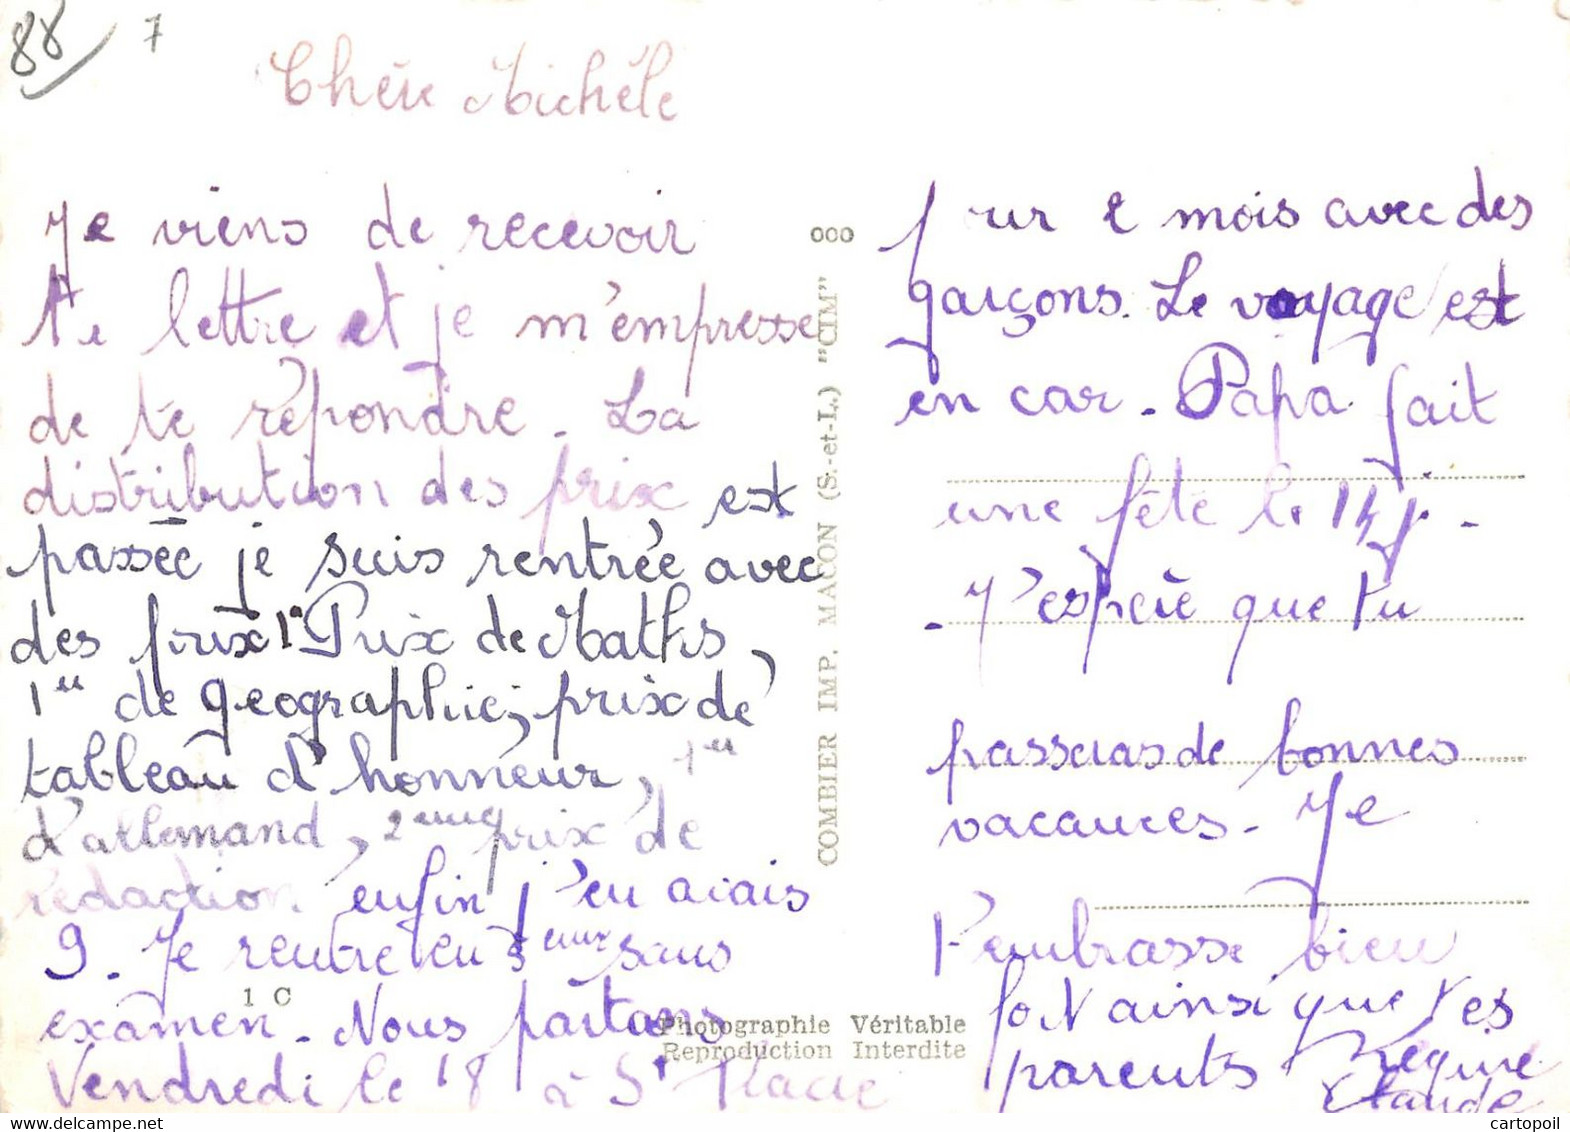 88 7
Chère Michèle
Je viens de recevoir
ta lettre et je m'empresse
de te répondre. La
distribution des prix est
passée je suis rentrée avec
des prix 1er Prix de Maths,
1er de geographie, prix de
tableau d'honneur, 1er
d'allemand, 2eme prix de
rédaction enfin j'en avais
9. Je rentre en 5eme sans
examen. Nous partons
Vendredi le 18 à St
1 C
ooo
COMBIER IMP. MACON (S.-et-L.) "CIM"
Photographie Véritable
Reproduction Interdite
pour 1 mois avec des
garçons. Le voyage est
en car. Papa fait
une fête le 14 j.
- J'espère que tu
passeras de bonnes
vacances. Je
t'embrasse bien
fort ainsi que tes
parents Régine
Claude
cartopoil